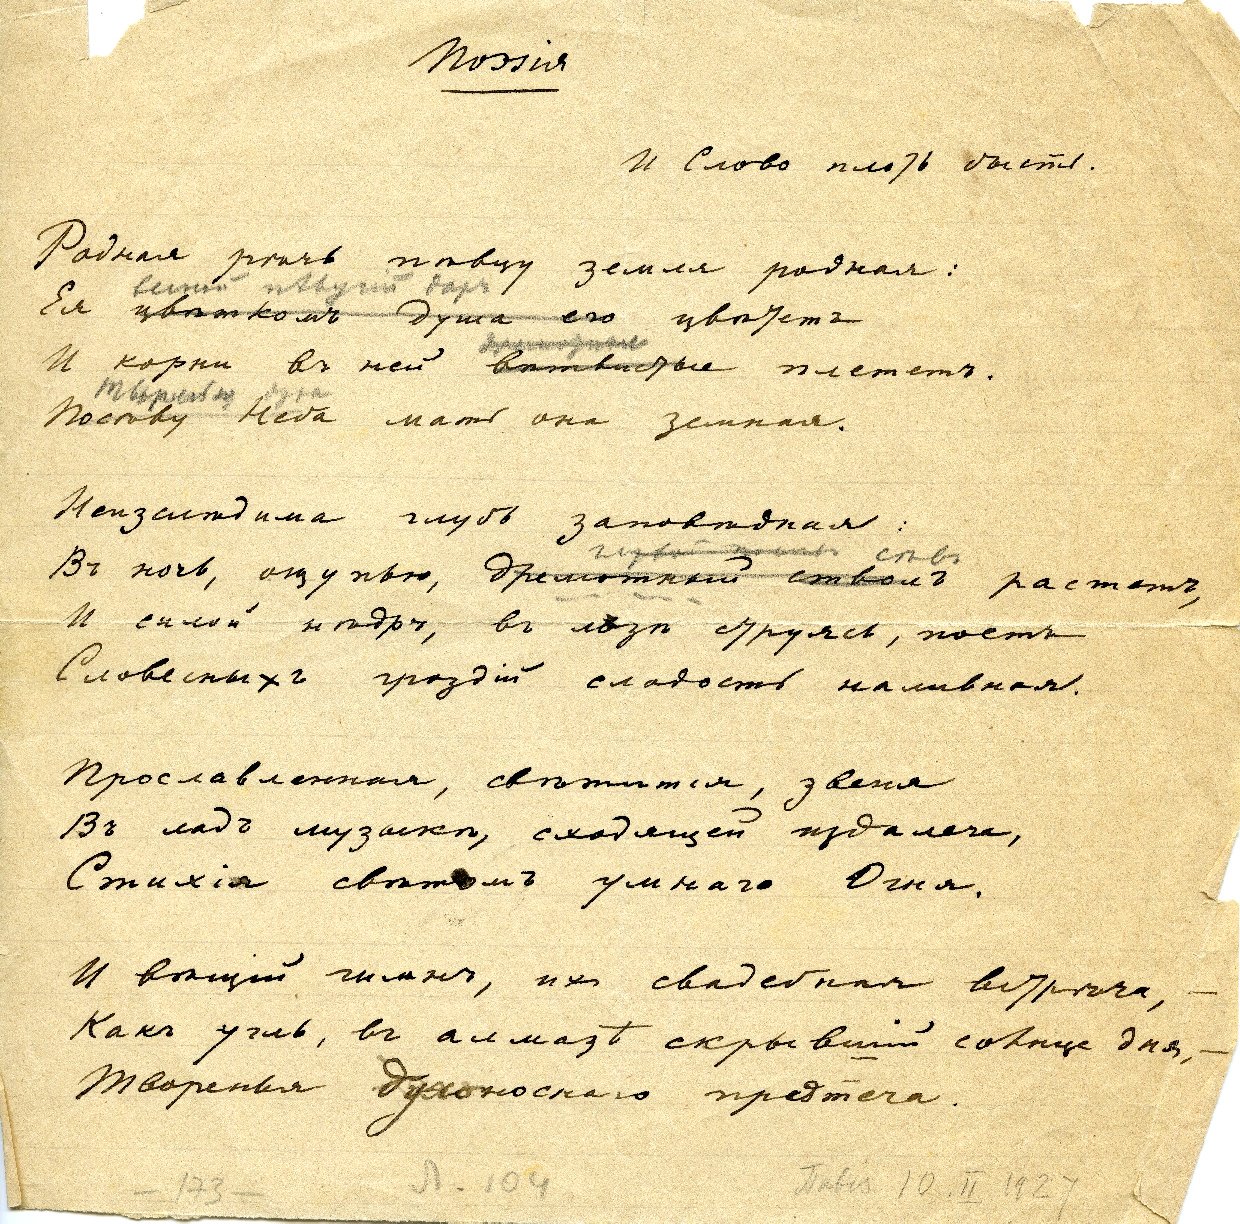 Поэзія
И Слово плоть бысть.
Родная рѣчь пѣвцу земля родная:
вешній пѣвучій даръ
Ея цвѣткомъ душа его цвѣтетъ
И корни въ ней вѣтвистые плететъ.
Творитъ духа
Посѣву Неба мать она земная.
Неизслѣдима глубь заповѣдная:
стволъ
Въ ночь, ощупью, дремотный стволъ растетъ,
И силой нѣдръ, въ лозѣ струясь, поетъ
Словесныхъ гроздій сладость наливная.
Прославленная, свѣтится, звеня
Въ ладъ музыкѣ, сходящей издалеча,
Стихія свѣтомъ умнаго Огня.
И вѣщій гимнъ, ихъ свадебная встрѣча, —
Какъ угль, въ алмазѣ скрывшій солнце дня, —
Творенья духоноснаго предтеча.
— 173 — Л. 104 Павія 10.II 1927